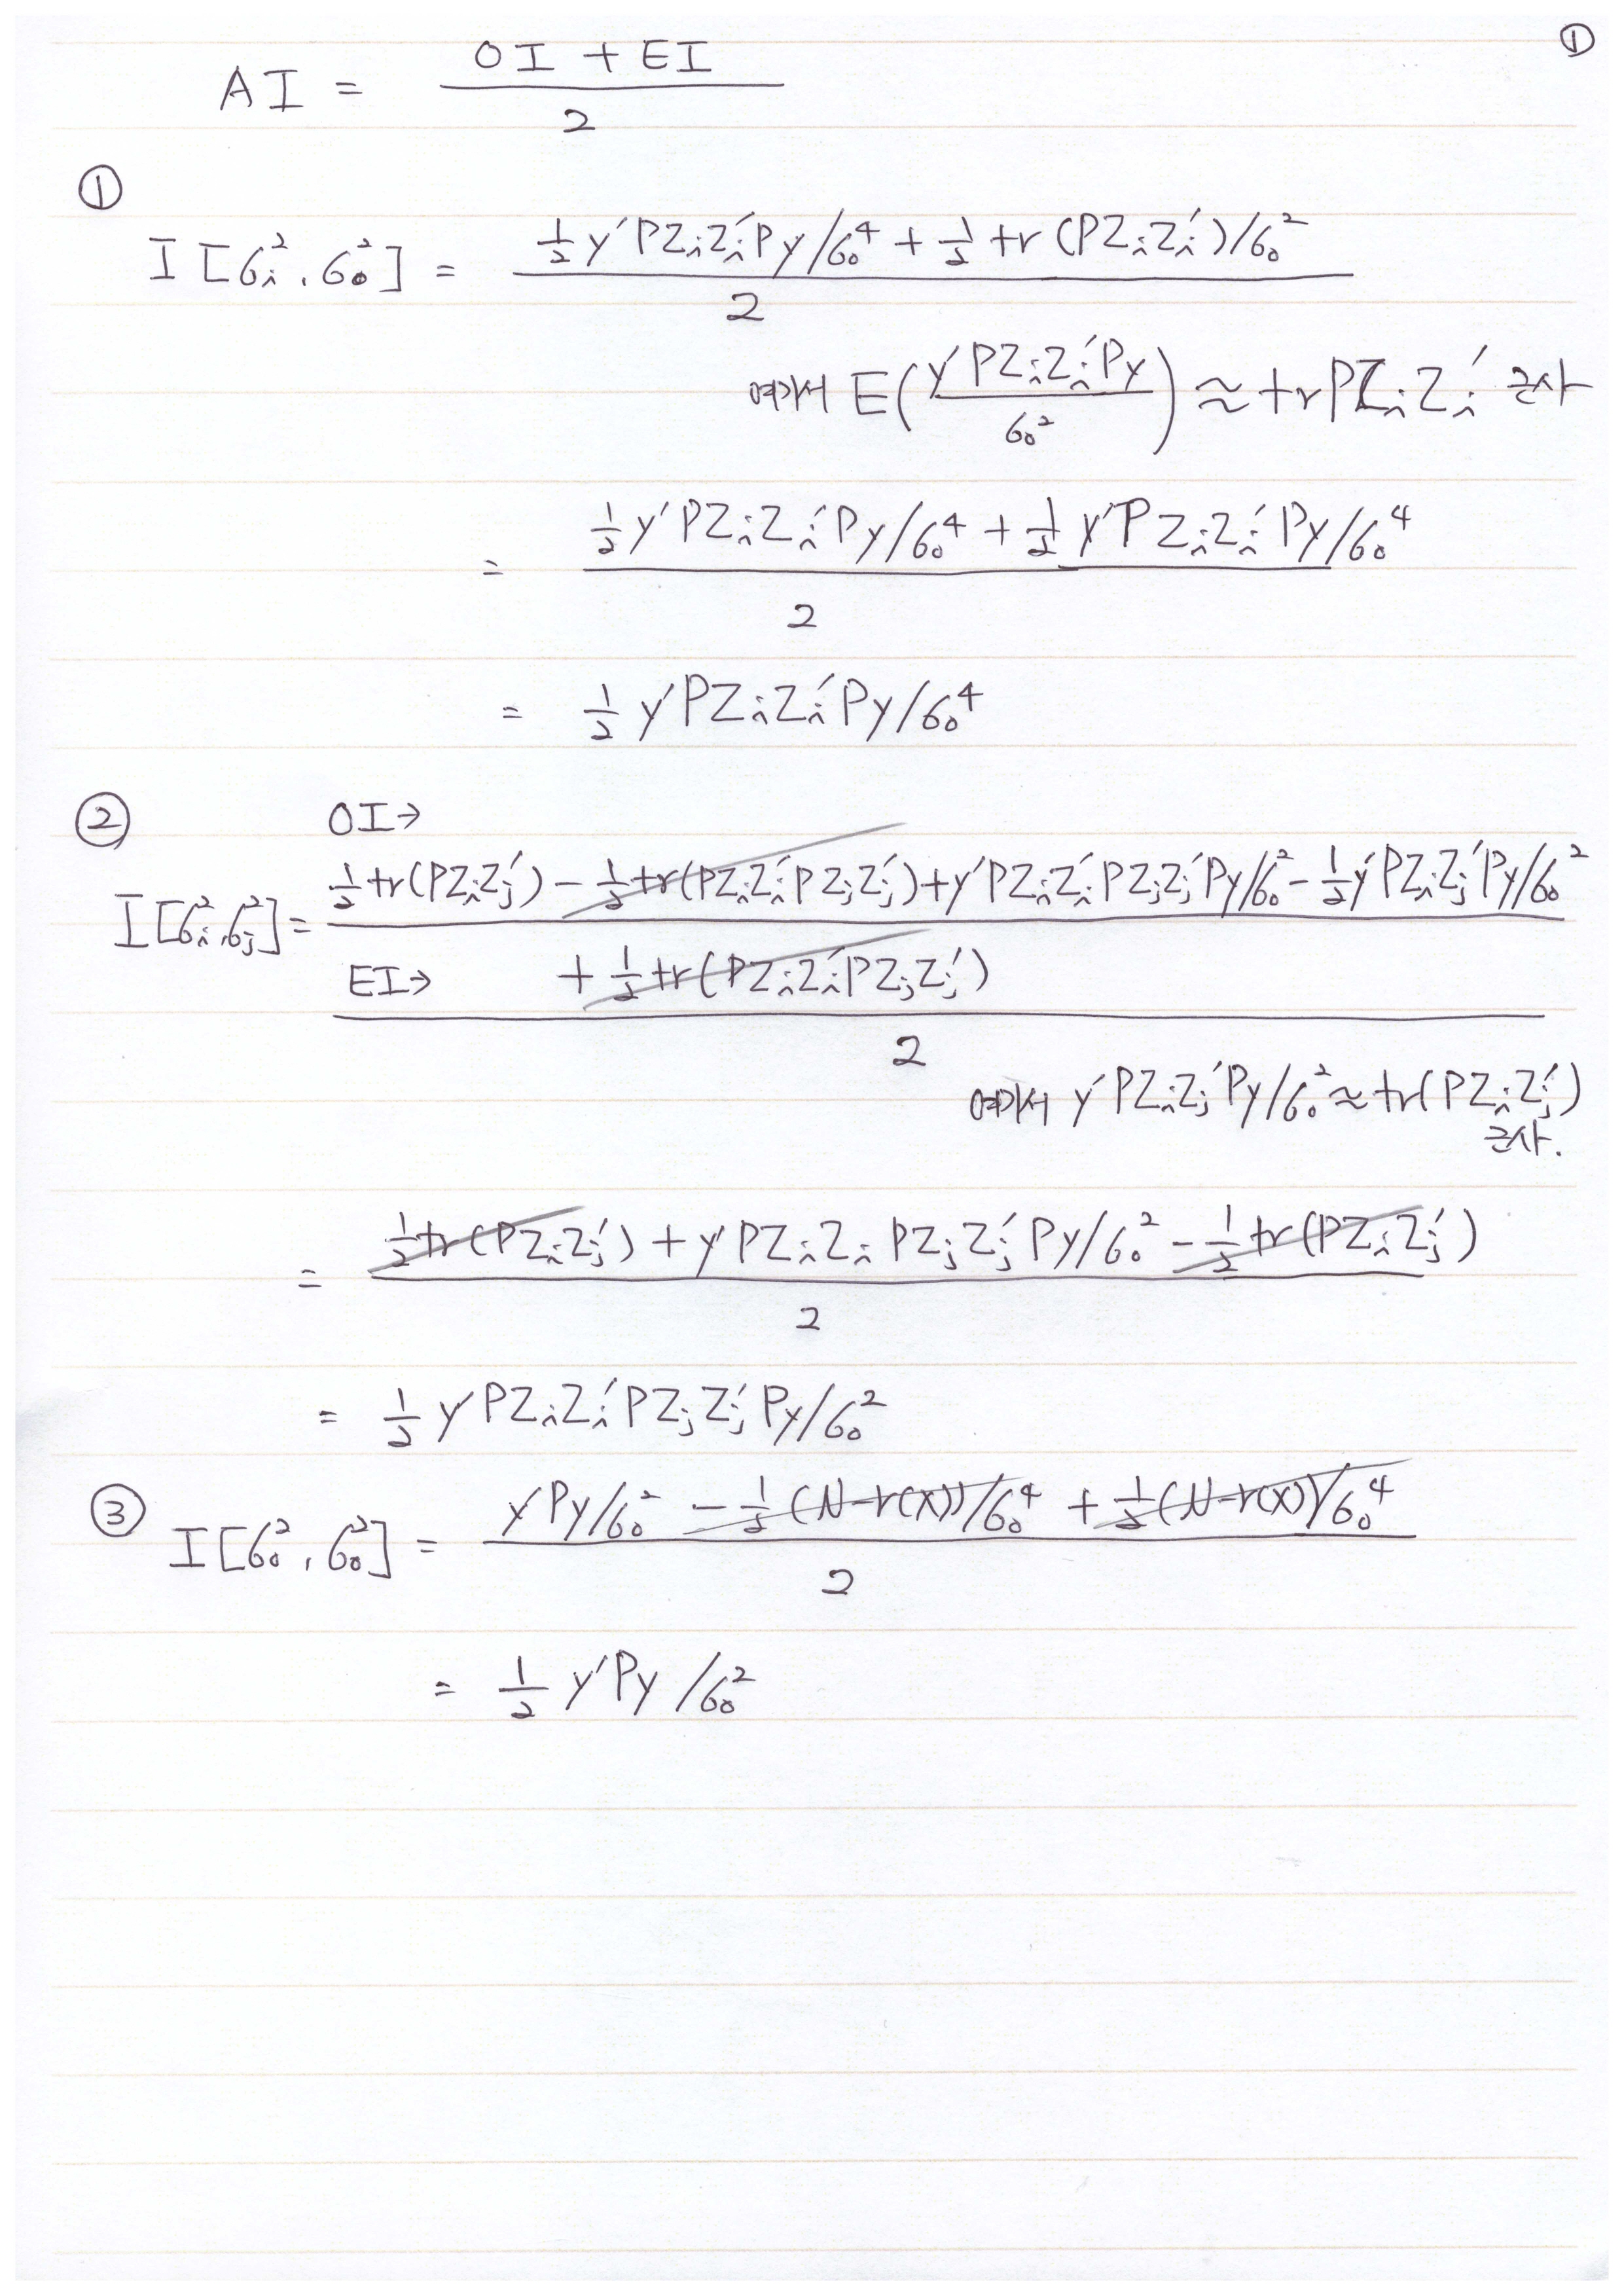 ①
AI = (OI + EI) / 2
①
I[σᵢ², σ₀²] = (½ y′PZᵢZᵢ′Py/σ₀⁴ + ½ tr(PZᵢZᵢ′)/σ₀²) / 2
여기서 E(y′PZᵢZᵢ′Py / σ₀²) ≈ trPZᵢZᵢ′ 근사
= (½ y′PZᵢZᵢ′Py/σ₀⁴ + ½ y′PZᵢZᵢ′Py/σ₀⁴) / 2
= ½ y′PZᵢZᵢ′Py/σ₀⁴
②
OI→
I[σᵢ², σⱼ²] = ½ tr(PZᵢZⱼ′) − ½ tr(PZᵢZᵢ′PZⱼZⱼ′) + y′PZᵢZᵢ′PZⱼZⱼ′Py/σ₀² − ½ y′PZᵢZⱼ′Py/σ₀²
EI→ + ½ tr(PZᵢZᵢ′PZⱼZⱼ′)
2
여기서 y′PZᵢZⱼ′Py/σ₀² ≈ tr(PZᵢZⱼ′)
근사.
= (½ tr(PZᵢZⱼ′) + y′PZᵢZᵢ PZⱼZⱼ′Py/σ₀² − ½ tr(PZᵢZⱼ′)) / 2
= ½ y′PZᵢZᵢ′PZⱼZⱼ′Py/σ₀²
③
I[σ₀², σ₀²] = (y′Py/σ₀² − ½(N−r(X))/σ₀⁴ + ½(N−r(X))/σ₀⁴) / 2
= ½ y′Py/σ₀²